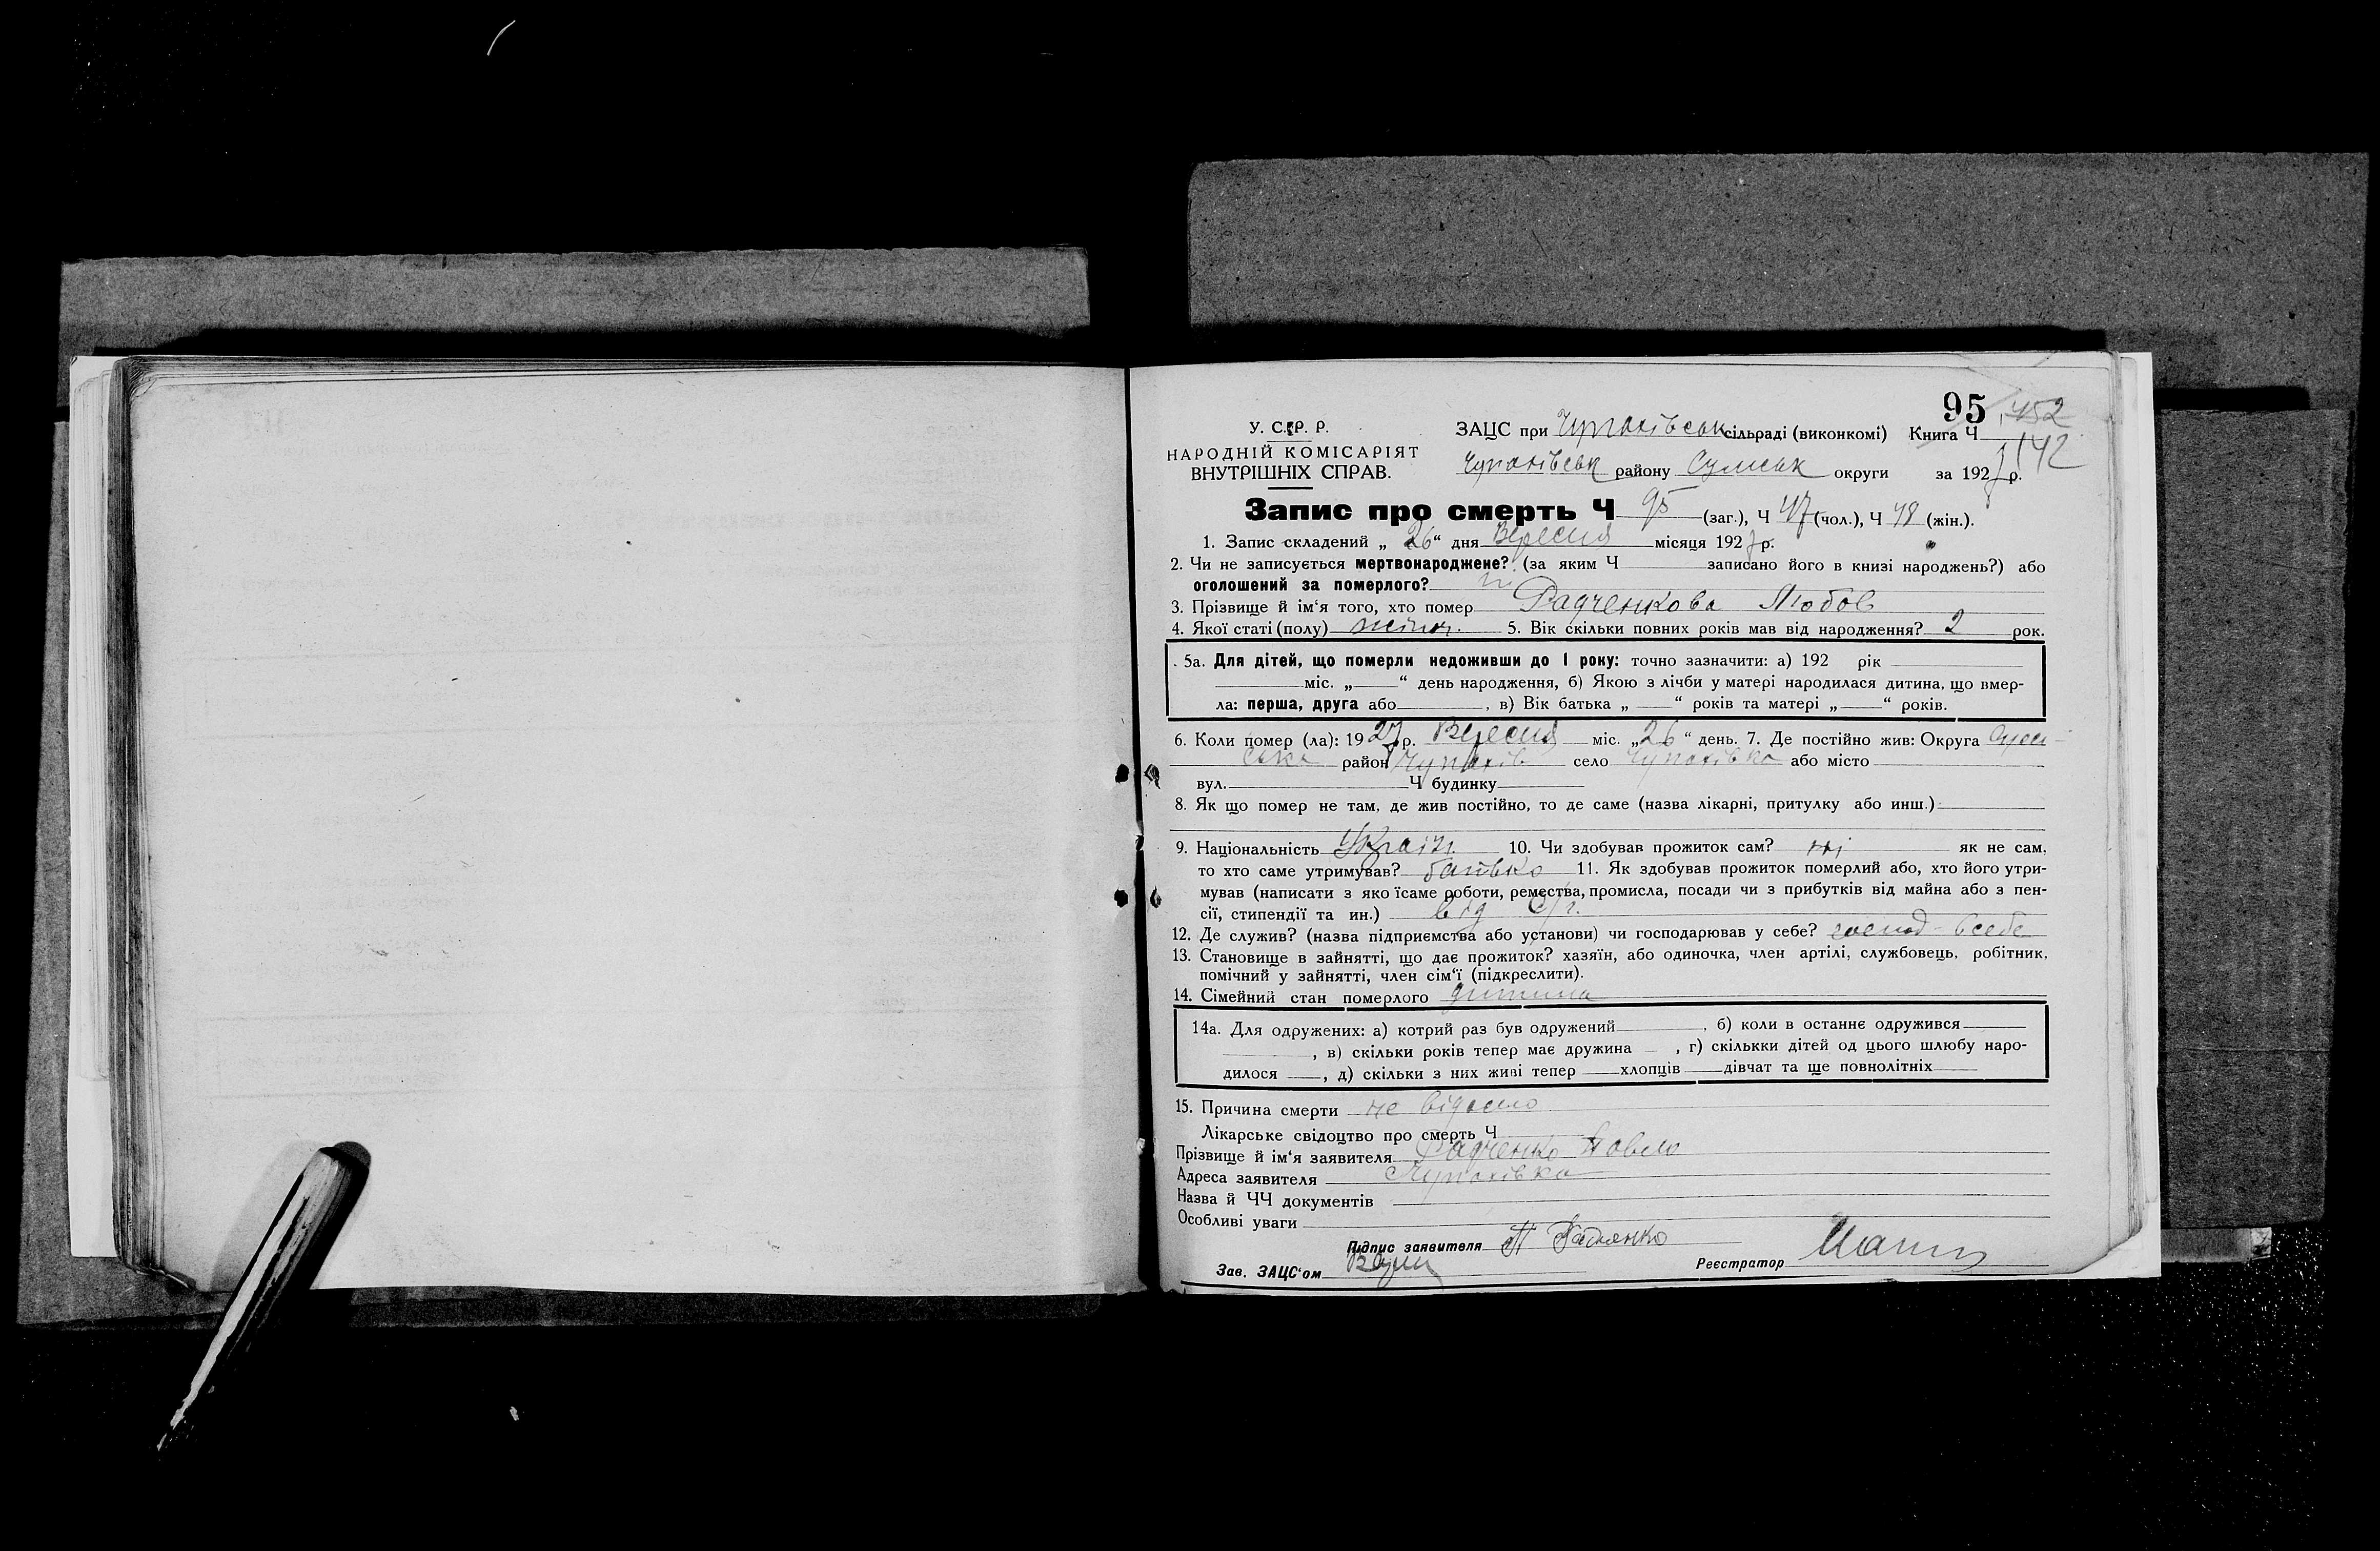 95 452
У. С. Р. Р. ЗАЦС при Чупахівськ сільраді (виконкомі) Книга Ч 142
НАРОДНІЙ КОМІСАРІЯТ
ВНУТРІШНІХ СПРАВ. Чупахівськ району Сумськ округи за 1927 р.
Запис про смерть Ч 95 (заг.), Ч 47 (чол.), Ч 48 (жін.).
1. Запис складений „ 26 “ дня Вересня місяця 1927 р.
2. Чи не записується мертвонароджене? (за яким Ч записано його в книзі народжень?) або
оголошений за померлого? ні
3. Прізвище й ім‘я того, хто помер Радченкова Любов
4. Якої статі (полу) жіноч. 5. Вік скільки повних років мав від народження? 2 рок.
5а. Для дітей, що померли недоживши до 1 року: точно зазначити: а) 192 рік
міс. „ “ день народження, б) Якою з лічби у матері народилася дитина, що вмер-
ла: перша, друга або , в) Вік батька „ “ років та матері „ “ років.
6. Коли помер (ла): 1927 р. Вересня міс. „ 26 “ день. 7. Де постійно жив: Округа Сумсь-
ська район Чупахів село Чупахівка або місто
вул. Ч будинку
8. Як що помер не там, де жив постійно, то де саме (назва лікарні, притулку або инш.)
9. Національність Україн. 10. Чи здобував прожиток сам? ні як не сам,
то хто саме утримував? батько 11. Як здобував прожиток померлий або, хто його утри-
мував (написати з яко їсаме роботи, ремества, промисла, посади чи з прибутків від майна або з пен-
сії, стипендії та ин.) від с/г.
12. Де служив? (назва підприємства або установи) чи господарював у себе? господ в себе
13. Становище в зайнятті, що дає прожиток? хазяїн, або одиночка, член артілі, службовець, робітник,
помічний у зайнятті, член сім‘ї (підкреслити).
14. Сімейний стан померлого дитина
14а. Для одружених: а) котрий раз був одружений , б) коли в останнє одружився
, в) скільки років тепер має дружина , г) скількки дітей од цього шлюбу наро-
дилося , д) скільки з них живі тепер хлопців дівчат та ще повнолітніх
15. Причина смерти не відомо
Лікарське свідоцтво про смерть Ч
Прізвище й ім‘я заявителя Радченко Павло
Адреса заявителя Чупахівка
Назва й ЧЧ документів
Особливі уваги
Підпис заявителя П Радченко
Зав. ЗАЦС‘ом Реєстратор